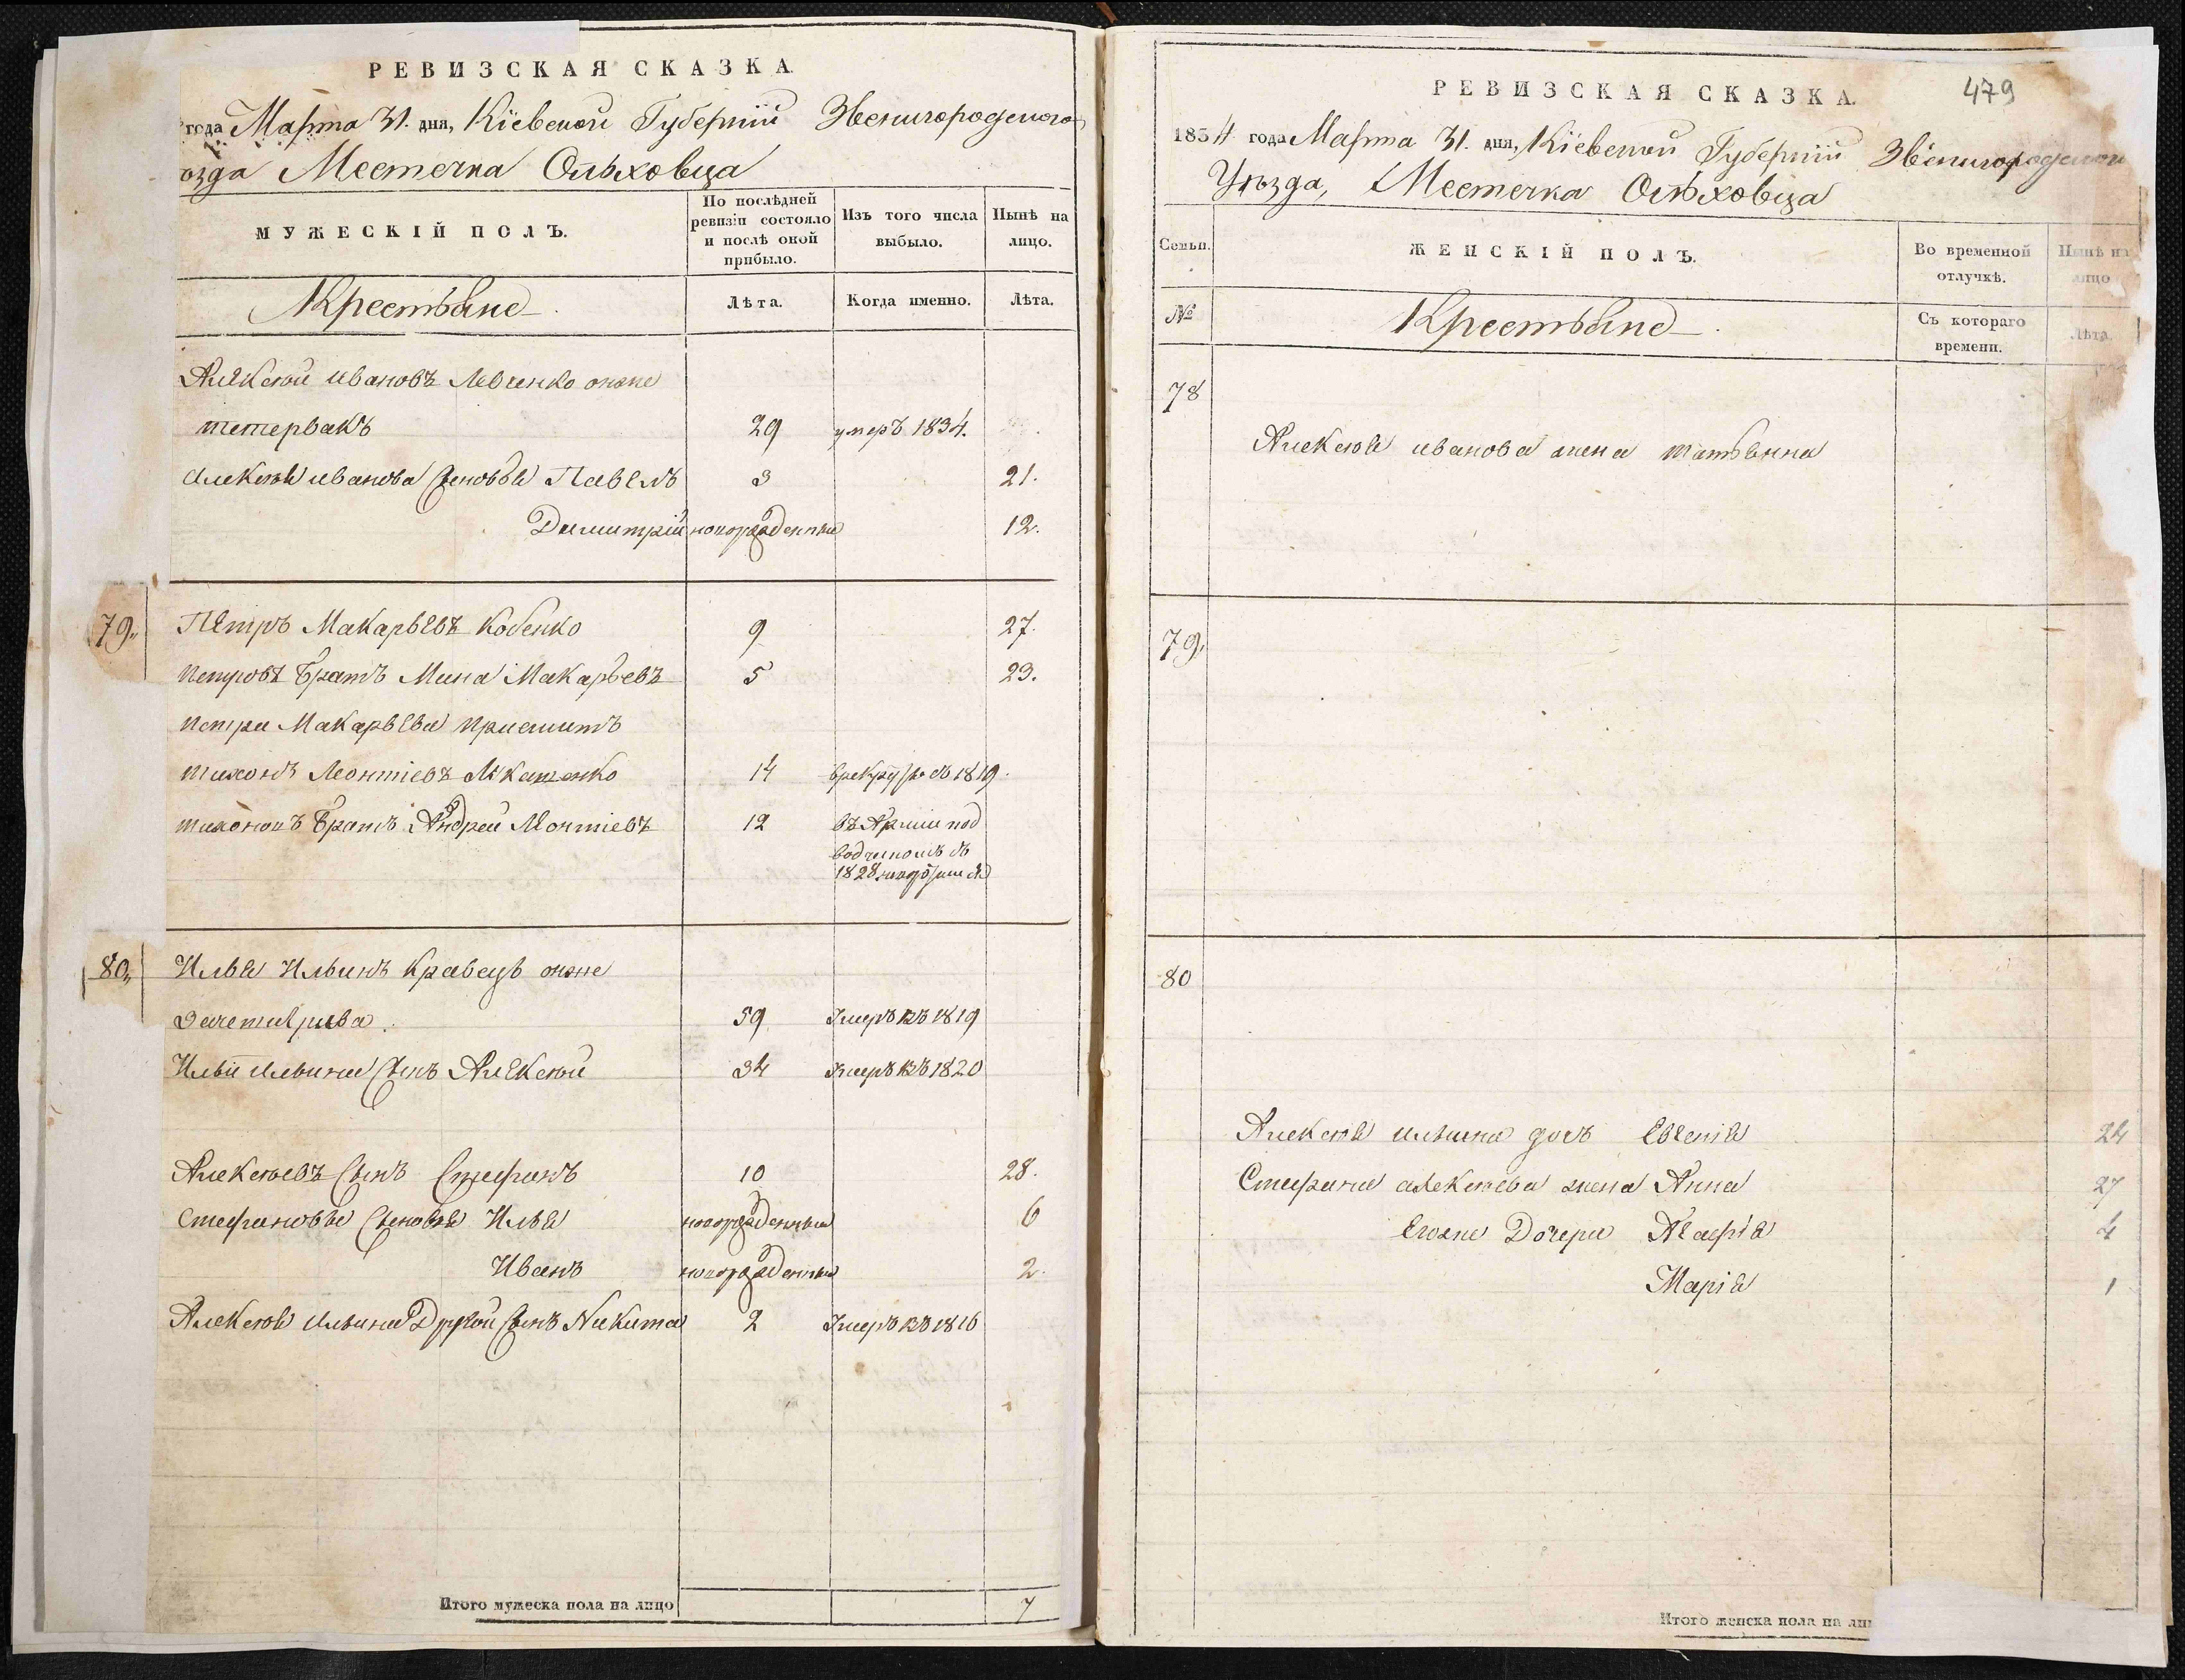 РЕВИЗСКАЯ СКАЗКА.
года Марта 31. дня, Кіевской Губерніи Звенигородского
ѣзда Местечка Ольховца
МУЖЕСКІЙ ПОЛЪ.
По послѣдней ревизіи состояло и послѣ оной прибыло.
Изъ того числа выбыло.
Нынѣ на лицо.
Крестьяне
Лѣта.
Когда именно.
Лѣта.
Алексѣй Ивановъ Левченко онже
тетервакъ 29 умеръ 1834.
Алексѣя иванова сыновья Павелъ 3 21.
Димитрій новорожденный 12.
79. Пётръ Макарьевъ Кобенко 9 27.
Петровъ братъ Мина Макарьевъ 5 23.
Петра Макарьева приемитъ
тихонъ Леонтіевъ 14 1819.
тихоновъ братъ Андрей Леонтіевъ 12 въ Арміи под
1828
80. Илья Ильинъ Кравецъ онже
59 Умеръ въ 1819
Ильи Ильина сынъ Алексѣй 34 Умеръ въ 1820
Алексѣевъ сынъ Стефанъ 10 28.
Стефановы сыновья Илья новорожденный 6
Иванъ новорожденный 2.
Алексѣя Ильина Другой сынъ Никита 2 Умеръ въ 1816
Итого мужеска пола на лицо 7
479
РЕВИЗСКАЯ СКАЗКА.
1834 года Марта 31. дня, Кіевской Губерніи Звенигородского
Уѣзда, Местечка Ольховца
Семьи.
ЖЕНСКІЙ ПОЛЪ.
Во временной отлучкѣ.
Нынѣ на лицо
№
Крестьяне
Съ котораго времени.
Лѣта.
78
Алексѣя иванова жена татьянна
79.
80
Алексѣя ильина дочь Евгенія 24
Стефана алексѣева жена Анна 27
Егоже Дочери Агафія 4
Марія 1
Итого женска пола на ли